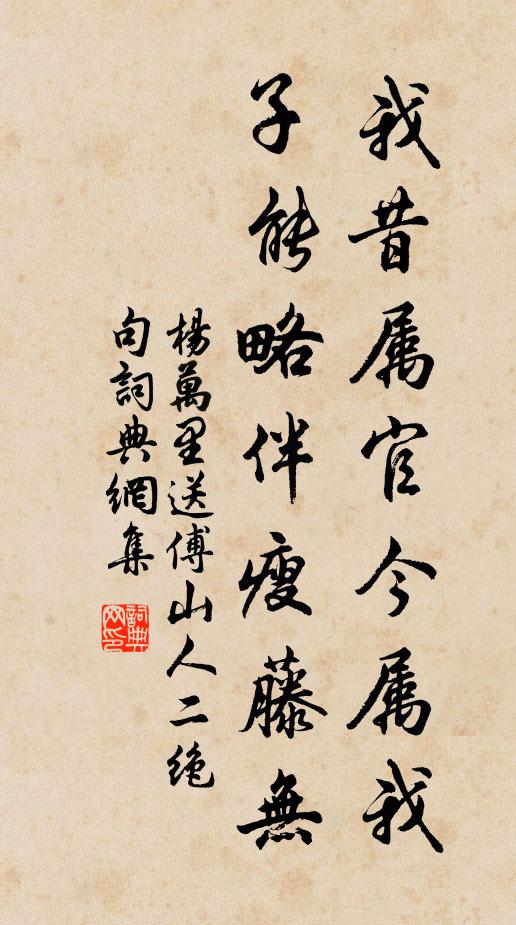 我昔属官今属我
子能略伴瘦藤無
楊萬里送傅山人二绝
句詞典網集
詞典网印